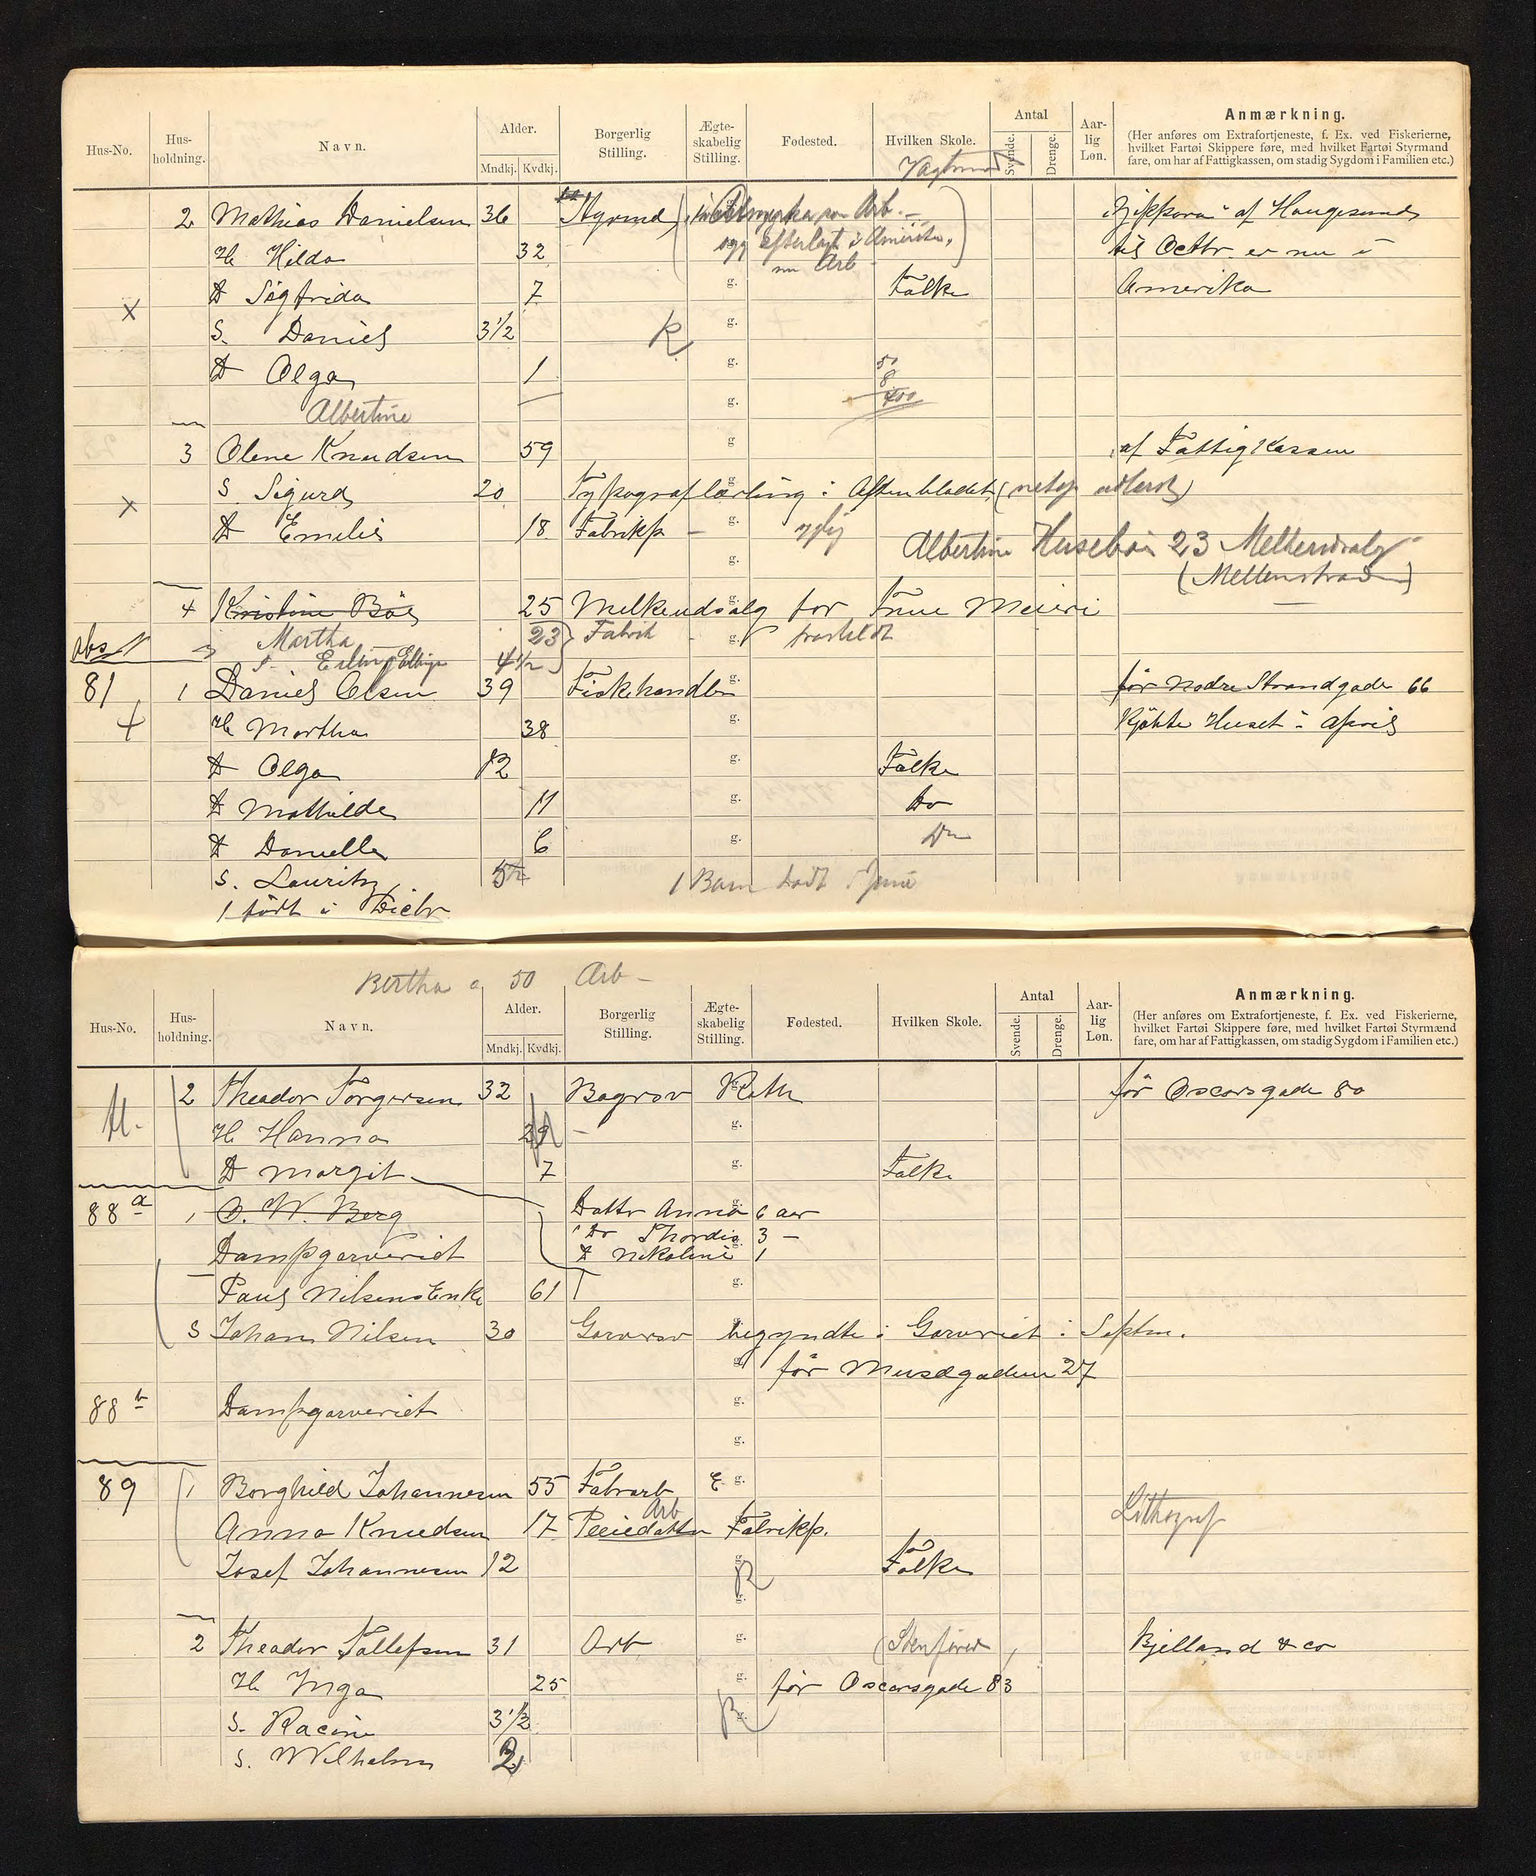 Hus-No. Hus-holdning. Navn. Alder. Mndkj. Kvdkj. Borgerlig Stilling. Ægte-skabelig Stilling. Fødested. Hvilken Skole. Antal Svende. Drenge. Aar-lig Løn. Anmærkning.
(Her anføres om Extrafortjeneste, f. Ex. ved Fiskerierne, hvilket Fartøi Skippere føre, med hvilket Fartøi Styrmand fare, om har af Fattigkassen, om stadig Sygdom i Familien etc.)
2 Mathias Danielsen 36 Styrmd Arb. af Haugesund
H Hilda 32 i Amerika, til Octbr er nu i
nu Arb
D Sigfrida 7 g. Folke Amerika
S. Daniel 3 1/2 R g.
D Olga 1 g. 50
8
400
Albertine g.
3 Olene Knudsen 59 g af Fattigkassen
S Sigurd 20 Typograflærling i Aftenbladet (netop udlært)
D Emilie 18 Fabrikp - g. Albertine Husebø 23 Melkeudsalg
g. (Mellemstraen)
4 Kristine Bøe 25 Melkeudsalg for Fuue Meieri
Martha 23 Fabrik - g. fraskildt
S. Erling 4 1/2
81 1 Daniel Olsen 39 Fiskehandler g. før Nedre Strandgade 66
H Martha 38 g. Kjøbte Huset i April
D Olga 12 g. Folke
D Mathilde 11 g. Do
D Danielle 6 g. Do
S. Lauritz 1 Barn født i Juni
1 født i Decbr
Bertha 50 Arb -
Hus-No. Hus-holdning. Navn. Alder. Mndkj. Kvdkj. Borgerlig Stilling. Ægte-skabelig Stilling. Fødested. Hvilken Skole. Antal Svende. Drenge. Aar-lig Løn. Anmærkning.
(Her anføres om Extrafortjeneste, f. Ex. ved Fiskerierne, hvilket Fartøi Skippere føre, med hvilket Fartøi Styrmænd fare, om har af Fattigkassen, om stadig Sygdom i Familien etc.)
2 Theodor Torgersen 32 Bagersv før Oscarsgade 80
H Hanna 29 - g.
D Margit 7 g. Folke
88 a 1 O. W. Berg Datter Anna 6 aar
Dampgarveriet Do Thordis 3 -
D Nikoline 1
Paul Nilsens Enke 61 g.
S Johan Nilsen 30 Garversv begyndte i Garveriet i Septbr.
g. før Musègaden 27
88 b Dampgarveriet g.
g.
89 1 Borghild Johannesen 55 Fabrarb E g.
Arb
Anna Knudsen 17 Pleiedatter Fabrikp. Lithograf
Josef Johannesen 12 g. R Folke
g.
2 Theodor Tollefsen 31 Arb g. Bjelland & co
H Inga 25 g. før Oscarsgade 83
S. Racin 3 1/2 R g.
S. Wilhelm 2